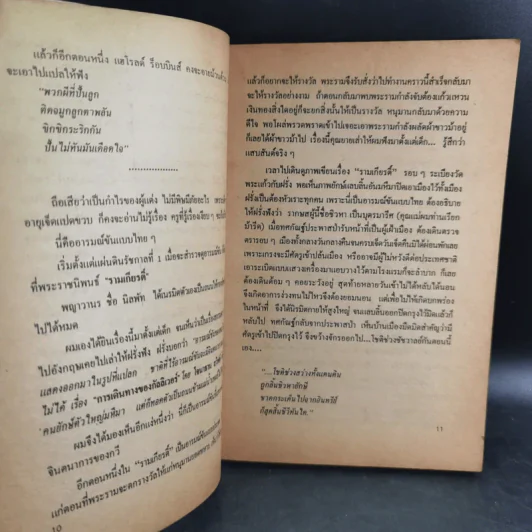 แล้วก็อีกตอนหนึ่ง แฮโรลด์ ร็อบบินส์ คงจะอายม้วนต้วน
จะเอาไปแปลให้ฟัง
"พวกผีที่ปั้นลูก
ติดจมูกลูกตาพลัน
ขิกขิกระริกกัน
ปั้นไม่ทันมันเดือดใจ"
....................
ถือเสียว่าเป็นกำไรของผู้แต่ง ไม่มีพิษมีภัยอะไร
อายุเจ็ดแปดขวบ ก็คงจะอ่านไม่รู้เรื่อง ครูที่รู้เรื่องเงียบๆ
นี่คืออารมณ์ขันแบบไทย ๆ
เริ่มตั้งแต่แผ่นดินรัชกาลที่ 1 เมื่อจะสำรวจดูอารมณ์ขัน
ที่พระราชนิพนธ์ "รามเกียรติ์"
พญาวานร ชื่อ นิลพัท ได้เนรมิตตัวเอง
ไปได้หมด
ผมเองได้ยินเรื่องนี้มาตั้งแต่เด็ก จนเห็นว่าเป็นเรื่อง
ไปอังกฤษเคยไปเล่าให้ฝรั่งฟัง ฝรั่งบอกว่า
แสดงออกมาในรูปที่แปลก ชาติที่ไร้อารมณ์ขัน
ไม่ได้ เรื่อง "การเดินทางของกัลลิเวอร์" โดย
คนยักษ์ตัวใหญ่มหึมา
ผมจึงได้มองเห็นอีกแง่หนึ่งว่า นี่ก็เป็นอารมณ์ขัน
จินตนาการของกวี
อีกตอนหนึ่งใน "รามเกียรติ์"
แก่ตอนที่พระรามจะตกรางวัลให้แก่หนุมาน
10
แล้วก็อยากจะให้รางวัล พระรามจึงรับสั่งว่าไปทำงานคราวนี้สำเร็จกลับมา
จะให้รางวัลอย่างงาม ถ้าตอนกลับมาพบพระรามกำลังจับต้องแก้วแหวน
เงินทองสิ่งใดอยู่ก็จะยกสิ่งนั้นให้เป็นรางวัล หนุมานกลับมาด้วยความ
ดีใจ พอโผล่พรวดพราดเข้าไปเจอะเอาพระรามกำลังผลัดผ้าขาวม้าอยู่
ก็เลยได้ผ้าขาวม้าไป เรื่องนี้คุณยายเล่าให้ผมฟังมาตั้งแต่เด็ก... รู้สึกว่า
แสบสันต์จริง ๆ
เวลาไปเดินดูภาพเขียนเรื่อง "รามเกียรติ์" รอบ ๆ ระเบียงวัด
พระแก้วกับฝรั่ง พอเห็นภาพยักษ์แลบลิ้นยันหมึมาปิดเอาเมืองไว้ทั้งเมือง
ฝรั่งเป็นต้องหัวเราะทุกคน เพราะนี่เป็นอารมณ์ขันแบบไทย ต้องอธิบาย
ให้ฝรั่งฟังว่า รากษสผู้นี้ชื่อชิวหา เป็นบุตรมารีศ (คุณแม่ผมท่านเรียก
ม้ารีด) เมื่อทศกัณฐ์ประพาสป่ารับหน้าที่เป็นผู้เฝ้าเมือง ต้องเดินตรวจ
ตรารอบ ๆ เมืองทั้งกลางวันกลางคืนจนครบเจ็ดวันเจ็ดคืนมิได้ผ่อนพักเลย
เพราะเกรงจะมีศัตรูเข้าปล้นเมือง หรืออาจมีผู้ไม่หวังดีต่อประเทศชาติ
เอาระเบิดแบบแสวงเครื่องมาแอบวางไว้ตามโรงแรมก็จะลำบาก ก็เลย
ต้องเดินด้อม ๆ คอยระวังอยู่ สุดท้ายหลายวันเข้าไม่ได้หลับได้นอน
จึงเกิดอาการง่วงทนไม่ไหวจึงต้องยอมนอน แต่เพื่อไม่ให้เกิดบกพร่อง
ในหน้าที่ จึงได้นิรมิตกายให้สูงใหญ่ จนแลบลิ้นออกปิดกรุงไว้แล้วก็หลับ
ไป ทศกัณฐ์กลับจากประพาสป่า เห็นบ้านเมืองมืดมิดสำคัญว่ามี
ศัตรูเข้าไปปิดกรุงไว้ จึงขว้างจักรออกไป...โชติช่วงชัชวาลย์กันตอนนี้
เอง....
"...โชติช่วงสว่างทั้งแดนดิน
ถูกลิ้นชิวหายักษี
ขาดกระเด็นไปจากอินทรีย์
ก็สุดสิ้นชีวีทันใด."
11